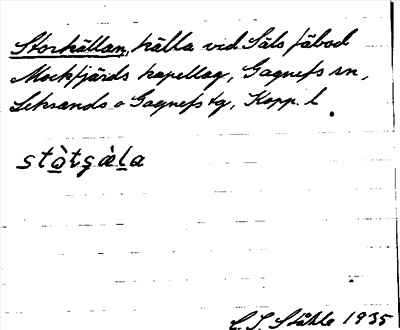 Storkällan, källa vid Säls fäbod
Mockfjärds kapellag, Gagnefs sn,
Leksands o Gagnefs tg, Kopp. l.
stòtşàḷa
C. I. Ståhle 1935